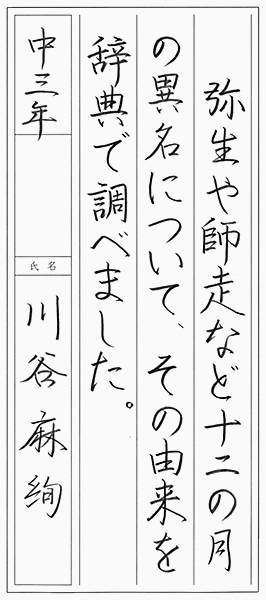 弥生や師走など十二の月
の異名について、その由来を
辞典で調べました。
中三年
氏名
川谷麻絢